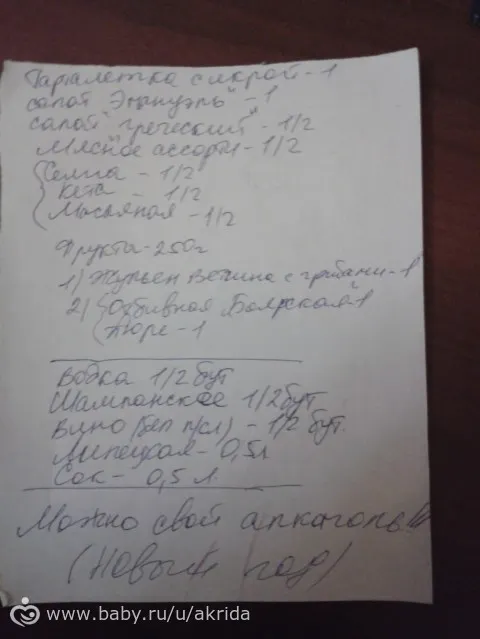 Тарталетка с икрой - 1
салат "Эммуэль" - 1
салат "греческий" - 1/2
Мясное ассорти - 1/2
Семга - 1/2
Кета - 1/2
Масляная - 1/2
Фрукты - 250г
1) Жульен Ветчина с грибами - 1
2) Отбивная Боярская - 1
Пюре - 1
Водка 1/2 бут
Шампанское 1/2 бут
Вино (бел п/сл) - 1/2 бут.
Липецкая - 0,5л
Сок - 0,5 л.
Можно свой алкоголь!!!
(Новый год)
www.baby.ru/u/akrida